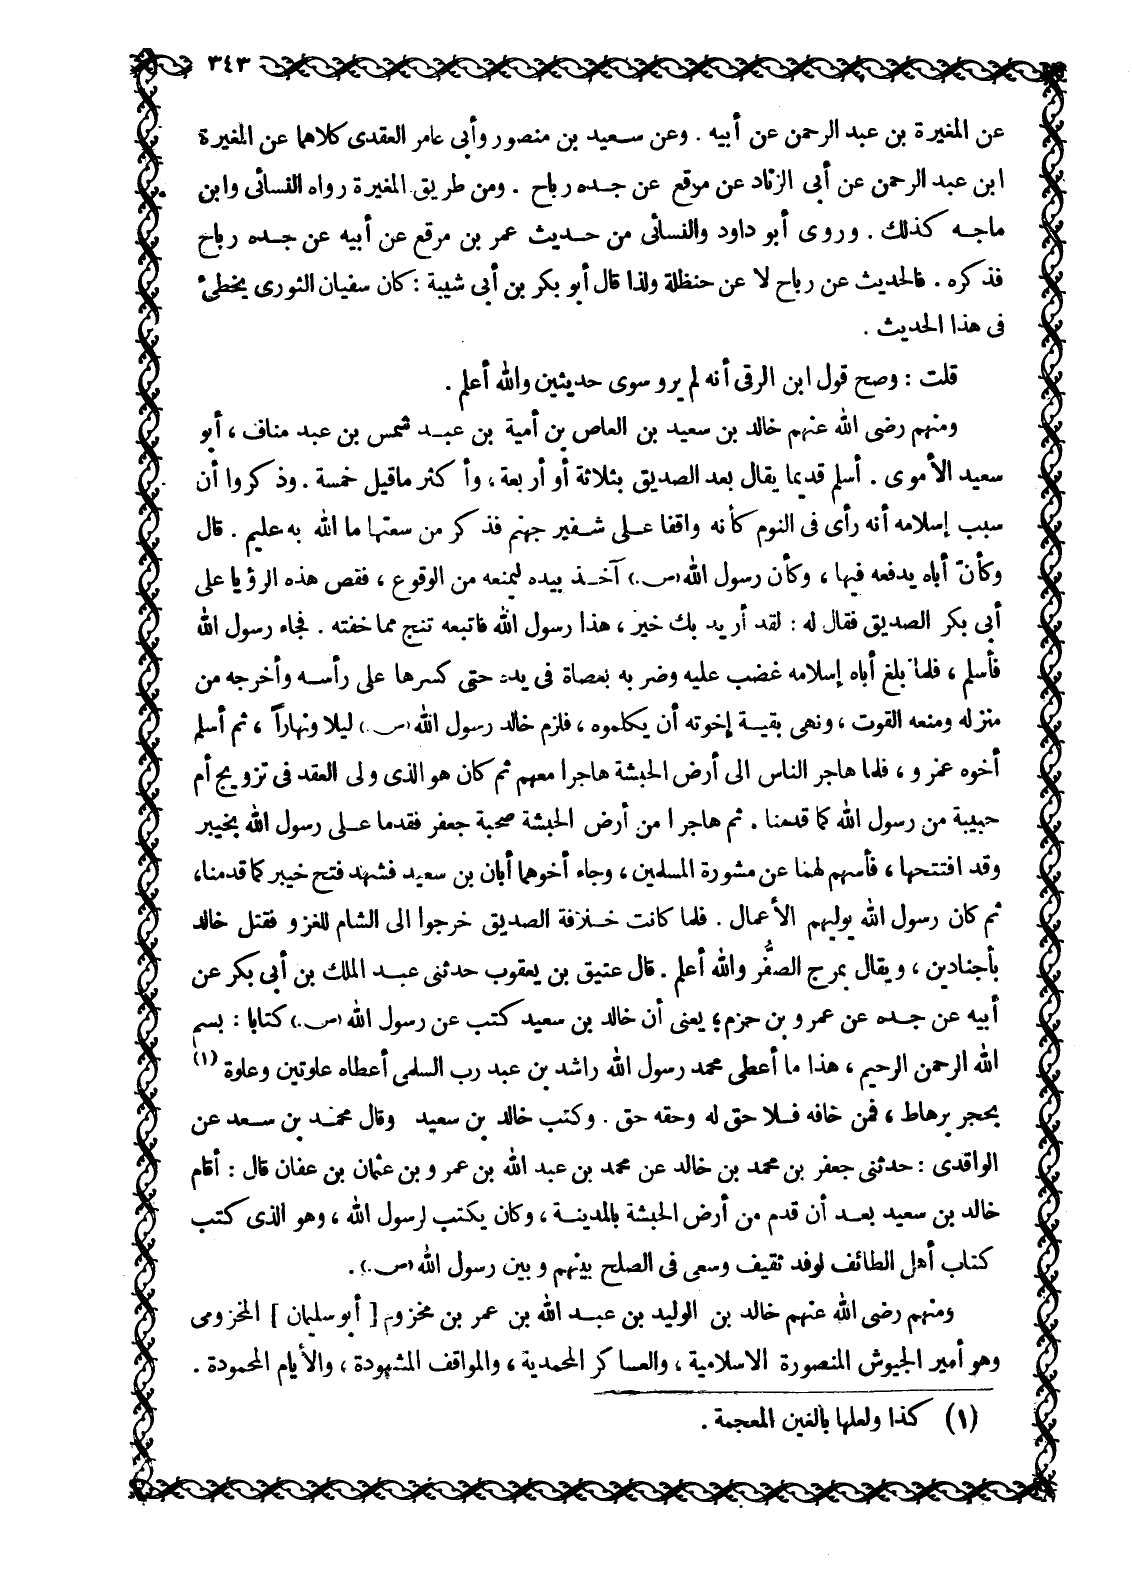 ٣٤٣
عن المغيرة بن عبد الرحمن عن أبيه . وعن سعيد بن منصور وأبى عامر العقدى كلاهما عن المغيرة
ابن عبد الرحمن عن أبى الزناد عن مرقع عن جده رباح . ومن طريق المغيرة رواه النسائى وابن
ماجه كذلك . وروى أبو داود والنسائى من حديث عمر بن مرقع عن أبيه عن جده رباح
فذكره . فالحديث عن رباح لا عن حنظلة ولذا قال أبو بكر بن أبى شيبة : كان سفيان الثورى يخطئ
فى هذا الحديث .
قلت : وصح قول ابن الرقى أنه لم يرو سوى حديثين والله أعلم .
ومنهم رضى الله عنهم خالد بن سعيد بن العاص بن أمية بن عبد شمس بن عبد مناف ، أبو
سعيد الأموى . أسلم قديما يقال بعد الصديق بثلاثة أو أربعة ، وأكثر ماقيل خمسة . وذكروا أن
سبب إسلامه أنه رأى فى النوم كأنه واقفا على شفير جهنم فذكر من سعتها ما الله به عليم . قال
وكأنّ أباه يدفعه فيها ، وكأن رسول الله (ص.) آخذ بيده ليمنعه من الوقوع ، فقص هذه الرؤيا على
أبى بكر الصديق فقال له : لقد أريد بك خير ، هذا رسول الله فاتبعه تنج مما خفته . فجاء رسول الله
فأسلم ، فلما بلغ أباه إسلامه غضب عليه وضربه بعصاة فى يده حتى كسرها على رأسه وأخرجه من
منزله ومنعه القوت ، ونهى بقية إخوته أن يكلموه ، فلزم خالد رسول الله (ص.) ليلا ونهاراً ، ثم أسلم
أخوه عمرو ، فلما هاجر الناس الى أرض الحبشة هاجرا معهم ثم كان هو الذى ولى العقد فى تزويج أم
حبيبة من رسول الله كما قدمنا . ثم هاجرا من أرض الحبشة صحبة جعفر فقدما على رسول الله بخيبر
وقد افتتحها ، فأسهم لهما عن مشورة المسلمين ، وجاء أخوهما أبان بن سعيد فشهد فتح خيبر كما قدمنا،
ثم كان رسول الله يوليهم الأعمال . فلما كانت خلافة الصديق خرجوا الى الشام للغزو فقتل خالد
بأجنادين ، ويقال بمرج الصفّر والله أعلم . قال عتيق بن يعقوب حدثنى عبد الملك بن أبى بكر عن
أبيه عن جده عن عمرو بن حزم؛ يعنى أن خالد بن سعيد كتب عن رسول الله (ص.) كتابا : بسم
الله الرحمن الرحيم ، هذا ما أعطى محمد رسول الله راشد بن عبد رب السلمى أعطاه علوتين وعلوة (١)
بحجر برهاط ، فمن خافه فلا حق له وحقه حق . وكتب خالد بن سعيد وقال محمد بن سعد عن
الواقدى : حدثنى جعفر بن محمد بن خالد عن محمد بن عبد الله بن عمرو بن عثمان بن عفان قال : أقام
خالد بن سعيد بعد أن قدم من أرض الحبشة بالمدينة ، وكان يكتب لرسول الله ، وهو الذى كتب
كتاب أهل الطائف لوفد ثقيف وسعى فى الصلح بينهم وبين رسول الله (ص.) .
ومنهم رضى الله عنهم خالد بن الوليد بن عبد الله بن عمر بن مخزوم [ أبو سليمان ] المخزومى
وهو أمير الجيوش المنصورة الاسلامية ، والعساكر المحمدية ، والمواقف المشهودة ، والأيام المحمودة .
(١) كذا ولعلها بالغين المعجمة .